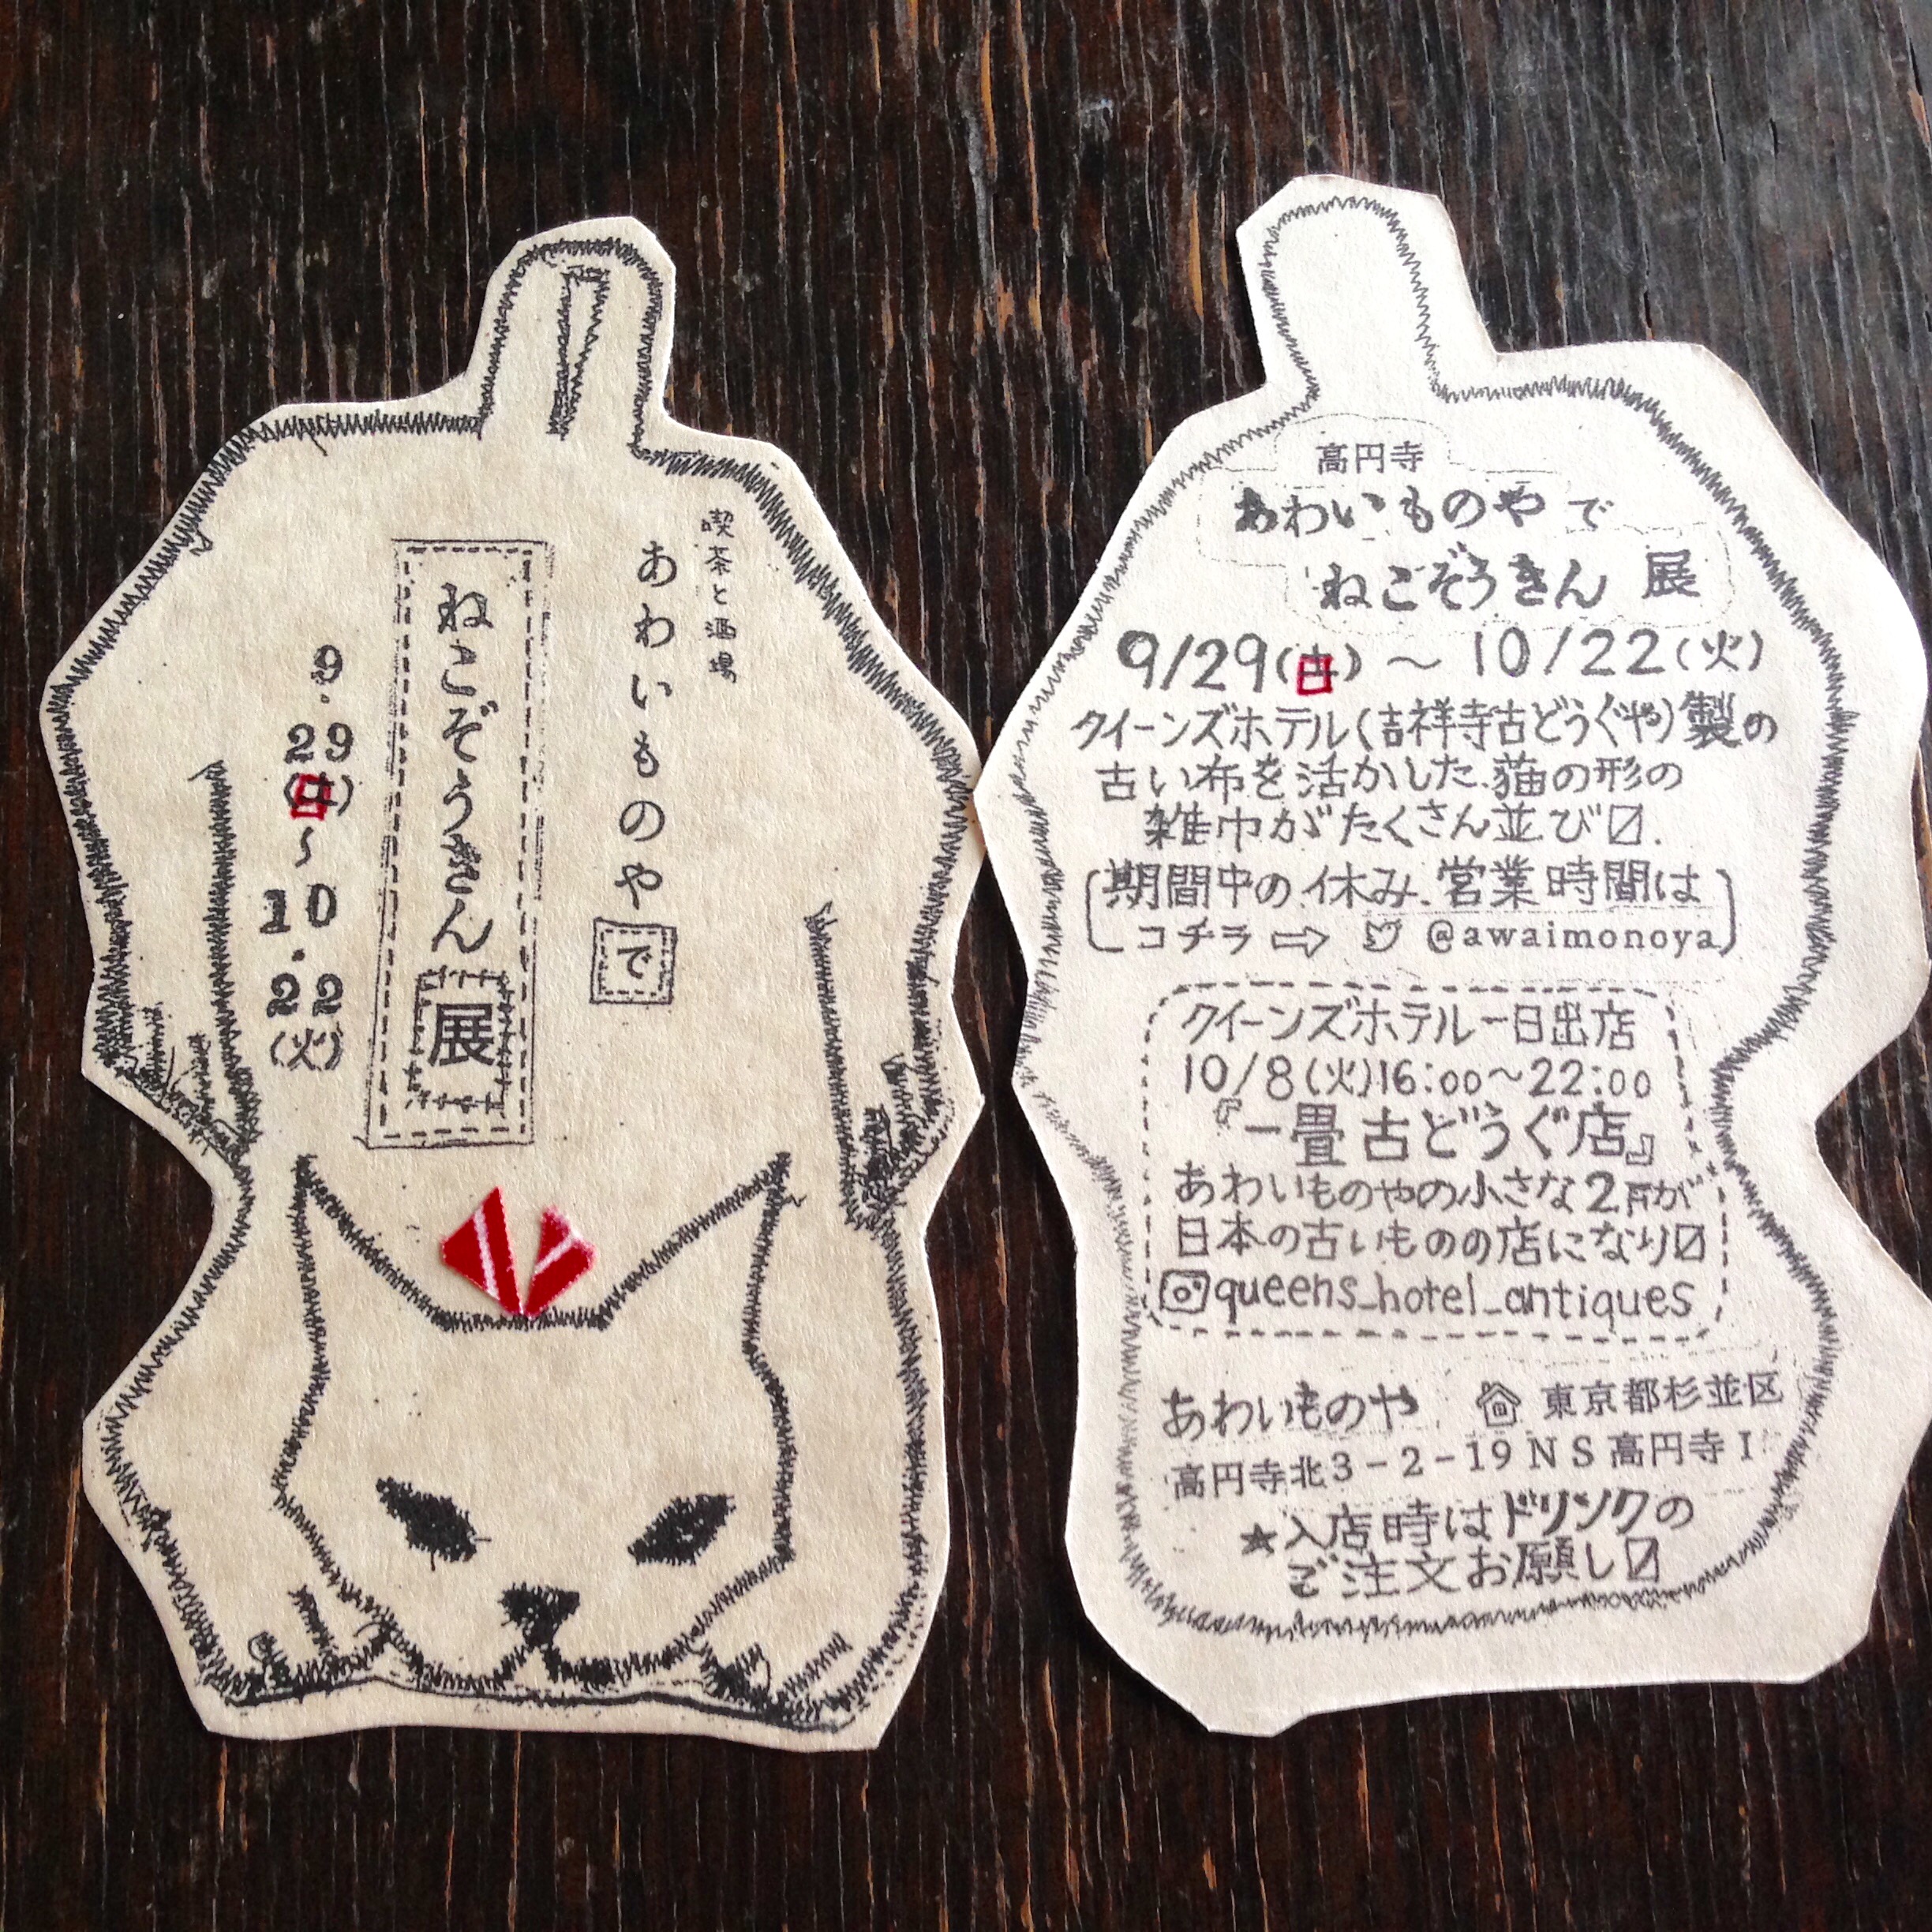 喫茶と酒場
あわいものやで
ねこぞうきん展
9.29(日)〜10.22(火)
高円寺
あわいものやで
ねこぞうきん 展
9/29(日)〜10/22(火)
クイーンズホテル(吉祥寺古どうぐや)製の
古い布を活かした猫の形の
雑巾がたくさん並び〼.
期間中の休み、営業時間は
コチラ⇨ @awaimonoya
クイーンズホテル一日出店
10/8(火)16:00〜22:00
『一畳古どうぐ店』
あわいものやの小さな2Fが
日本の古いものの店になり〼
queens_hotel_antiques
あわいものや 東京都杉並区
高円寺北3-2-19 NS高円寺I
★入店時はドリンクの
ご注文お願し〼